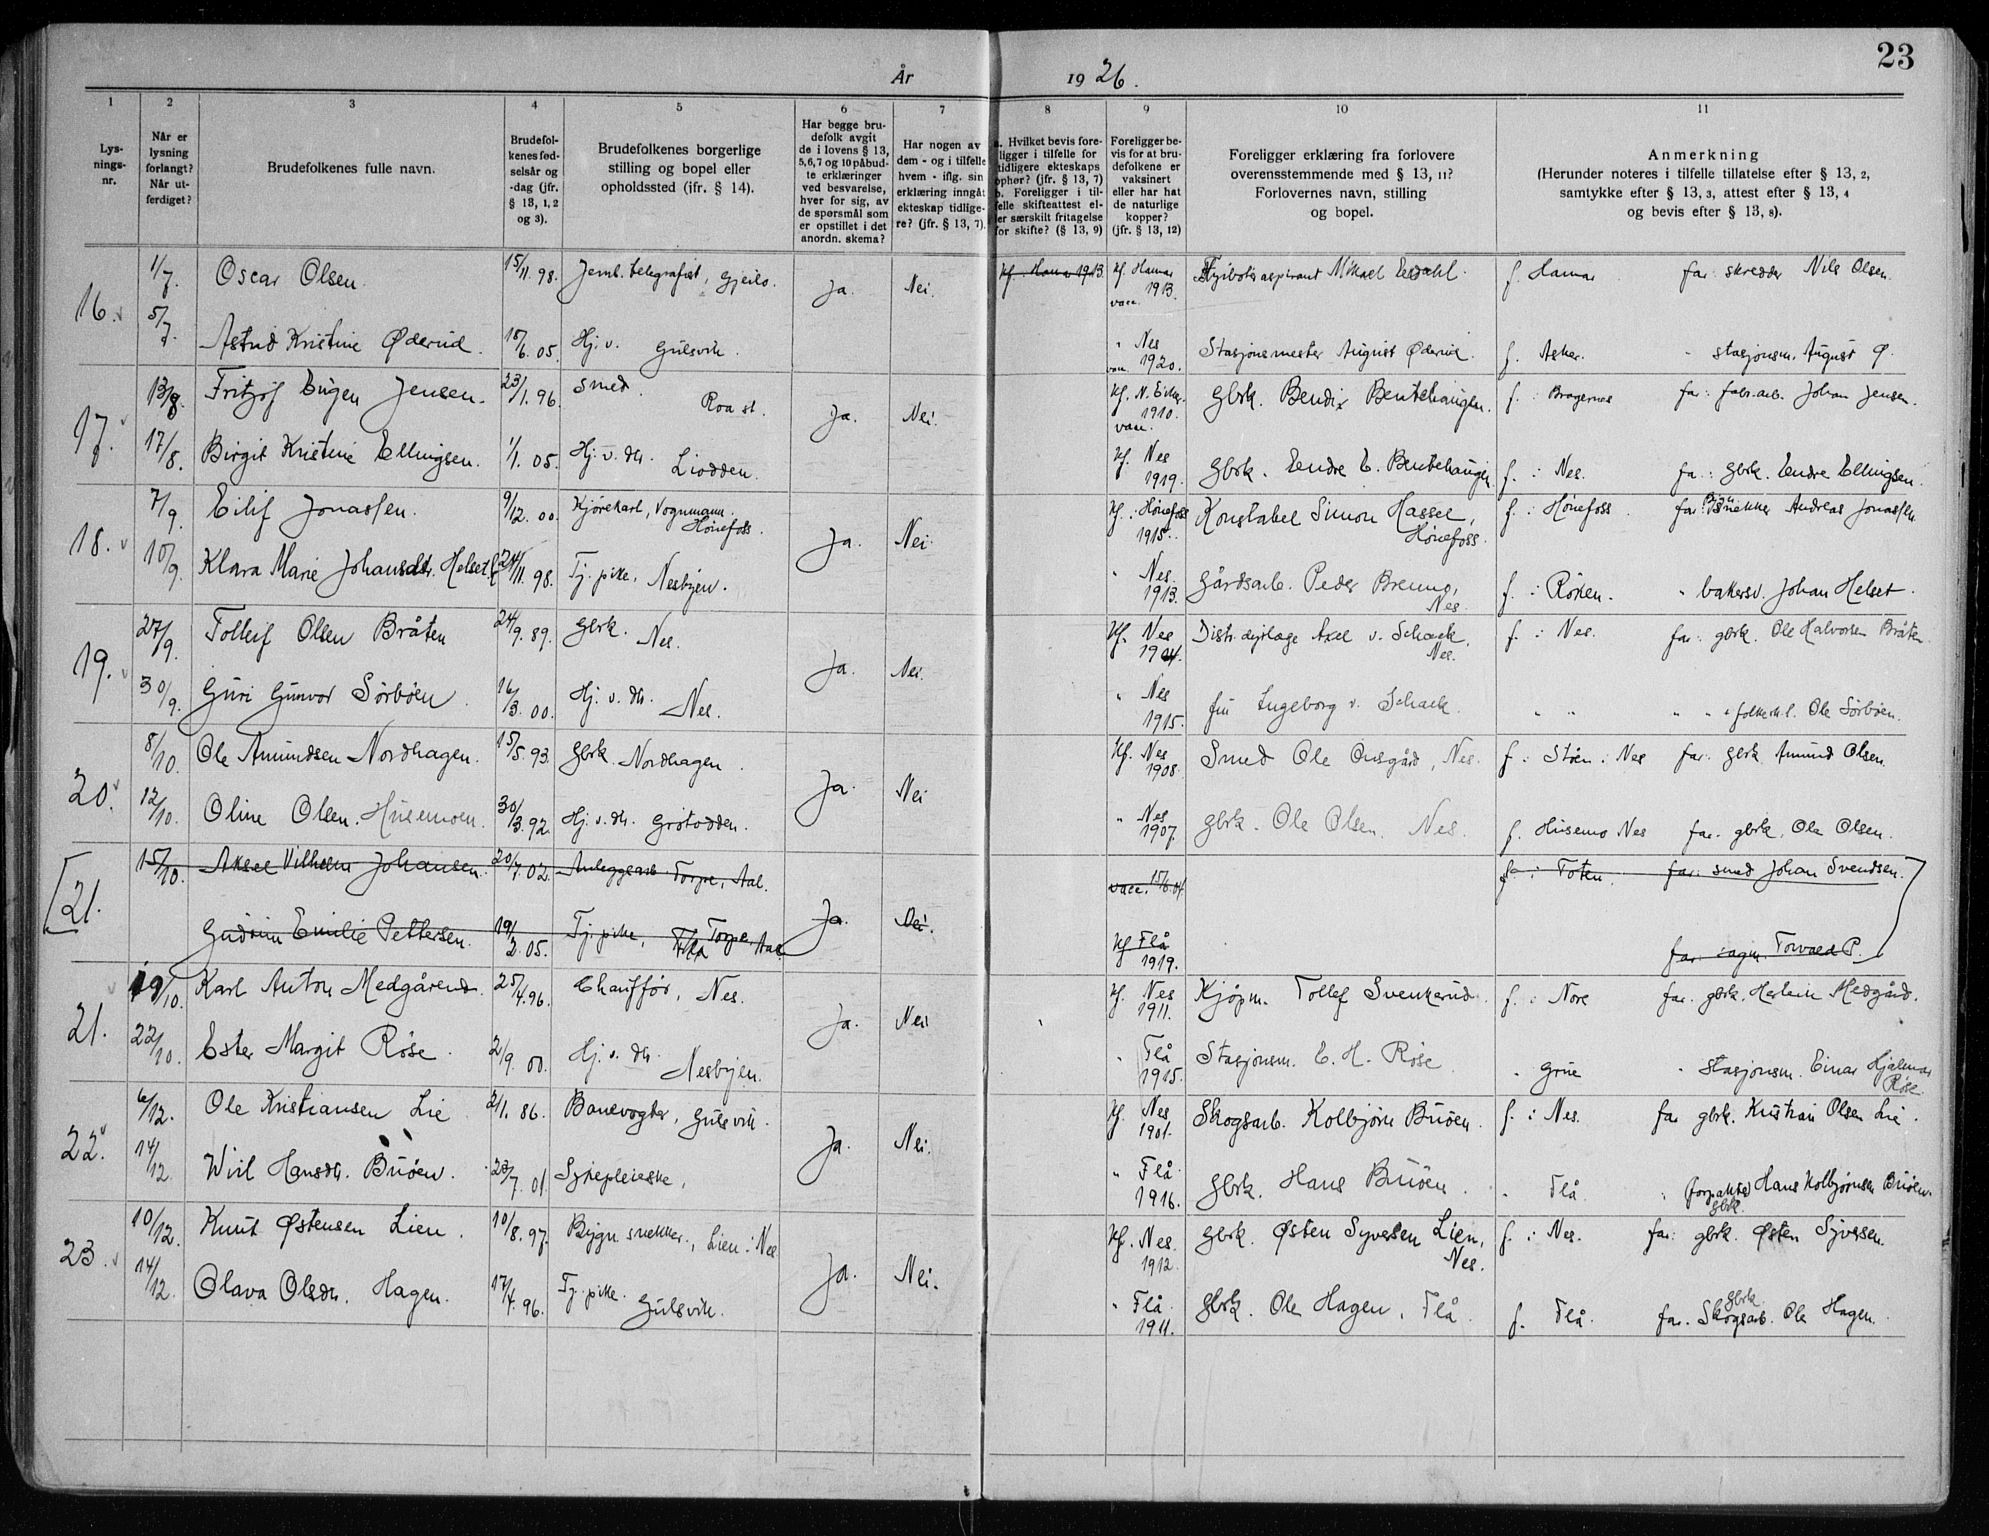 23
År 1926.
1 2 3 4 5 6 7 8 9 10 11
Lys-
nings-
nr.
Når er
lysning
forlangt?
Når ut-
ferdiget?
Brudefolkenes fulle navn.
Brudefol-
kenes fød-
selsår og
-dag (jfr.
§ 13, 1, 2
og 3).
Brudefolkenes borgerlige
stilling og bopel eller
opholdssted (ifr. § 14).
Har begge bru-
defolk avgit
de i lovens § 13,
5,6,7 og 10 påbud-
te erklæringer
ved besvarelse,
hver for sig, av
de spørsmål som
er opstillet i det
anordn. skema?
Har nogen av
dem - og i tilfelle
hvem - iflg. sin
erklæring inngåt
ekteskap tidlige-
re? (jfr. § 13, 7).
a. Hvilket bevis fore-
ligger i tilfelle for
tidligere ekteskaps
ophør? (jfr. § 13, 7)
b. Foreligger i til-
felle skifteattest el-
ler særskilt fritagelse
for skifte? (§ 13, 9)
Foreligger be-
vis for at bru-
defolkene er
vaksinert
eller har hat
de naturlige
kopper?
(jfr. § 13, 12)
Foreligger erklæring fra forlovere
overensstemmende med § 13, 11?
Forlovernes navn, stilling
og bopel.
Anmerkning
(Herunder noteres i tilfelle tillatelse efter § 13, 2,
samtykke efter § 13, 3, attest efter § 13, 4
og bevis efter § 13, 8).
16. 1/7. Oscar Olsen. 15/11.98. Jernb. telegrafist, Gjeilo. Ja. Nei. kf. Hamar 1913. kf. Hamar 1913. vacc. Mikael f. Hamar far: skredder Nils Olsen.
5/7. Astrid Kristine Øderud. 15/6.05. Hj. v. Gulsvik. " Nes 1920. Stasjonsmester August Øderud. f. Asker. " stasjonsm. August Ø.
17. 13/8. Fritjof Eugen Jensen. 23/1.96. Smed. Roa st. Ja. Nei. kf. N. Eiker 1910. vacc. Gbrk. Bendix Bentehaugen. f. : Bragernes far: fabr.arb. Johan Jensen.
17/8. Birgit Kristine Ellingsen. 1/1.05. Hj. v. dtr. Liodden. kf. Nes 1919. Gbrk. Endre E. Bentehaugen f. : Nes. fa: gbrk. Endre Ellingsen.
18. 7/9. Eilif Jonassen. 9/12.00. Kjørekarl, Vognmann. Hønefoss. Ja. Nei kf. : Hønefoss 1915. Konstabel Simon Hassel, Hønefoss. f. : Hønefoss far: Andreas Jonassen
10/9. Klara Marie Johansdtr. Helset 24/11 98. Tj. pike, Nesbyen. " Nes. 1913. Gårdsarb. Peder Bremo, Nes. f. : Røken. " bakersv. Johan Helset.
19. 27/9. Tolleif Olsen Bråten 24/9.89. Gbrk. Nes. Ja. Nei. kf. Nes 1904. Distr. dyrlæge Axel v. Schack. Nes. f. : Nes. far: gbrk. Ole Halvorsen Bråten
30/9. Guri Gunvor Sørbøen. 16/3.00. Hj. v. dtr. Nes. " Nes 1915. fru Ingeborg v. Schack. " " " " Ole Sørbøen.
20. 8/10. Ole Amundsen Nordhagen. 15/5.93. Gbrk. Nordhagen. Ja. Nei kf. Nes 1908. Smed Ole Nes. f. : Støen : Nes far: gbrk. Amund Olsen.
12/10. Oline Olsen. Husemoen. 30/3.92. Hj. v. dtr. Grøtodden. " Nes 1907. gbrk. Ole Olsen. Nes. f. Husemo Nes far. gbrk. Ole Olsen.
[21. 15/10. Aksel Vilhelm Johansen. 20/7.02. Anleggsarb. Torpe, Aal. Ja. Nei. vacc. 15/6.04 f. : Toten. far: smed Johan Svendsen.]
Gudrun Emilie Pettersen. 19/2.05. Tj. pike, Flå Torpe, Aal. kf Flå 1919. far: sagm. Torvald P.
21. 19/10. Karl Anton Medgården. 25/4.96. Chauffør, Nes. Ja. Nei kf. Nes 1911. Kjøpm. Tollef Svenkerud. f. : Nore far. gbrk. Herleik Medgård.
22/10. Ester Margit Røse. 2/9.00. Hj. v. dtr. Nesbyen. " Flå 1915. Stasjonsm. E. H. Røse " Grue " Stasjonsm. Einar Hjalmar Røse
22. 6/12. Ole Kristiansen Lie 2/1.86. Banevogter, Gulsvik. Ja. Nei. kf. Nes 1901. Skogsarb. Kolbjørn Buøen. f. : Nes. far gbrk. Kristian Olsen Lie.
14/12 Hansdtr. Buøen. 23/7.01. Sykepleierske, " Flå. 1916. Gbrk. Hans Buøen. " Flå " forpakter gbrk. Hans Kolbjørnsen Buøen.
23. 10/12. Knut Østensen Lien. 10/8.97. Bygn. snekker, Lien : Nes Ja. Nei. kf. Nes. 1912. gbrk. Østen Syversen Lien, Nes. f. : Nes. far: gbrk. Østen Syversen.
14/12. Olava Olsdtr. Hagen. 17/4.96. Tj. pike. Gulsvik. " Flå. 1911. Gbrk. Ole Hagen, Flå. f. Flå. far. gbrk. Skogsarb. Ole Hagen.